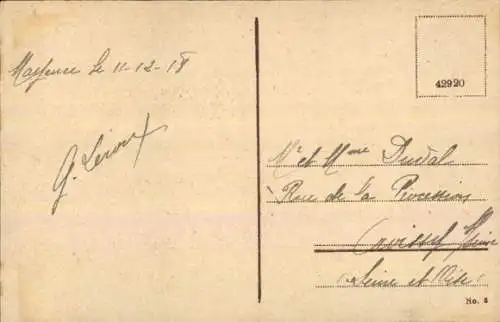 Mayence le 11-12-18
G. Leroux
42920
Mr et Mme Duval
Rue de la Procession
Croissy s/ Seine
(Seine et Oise)
No. 4